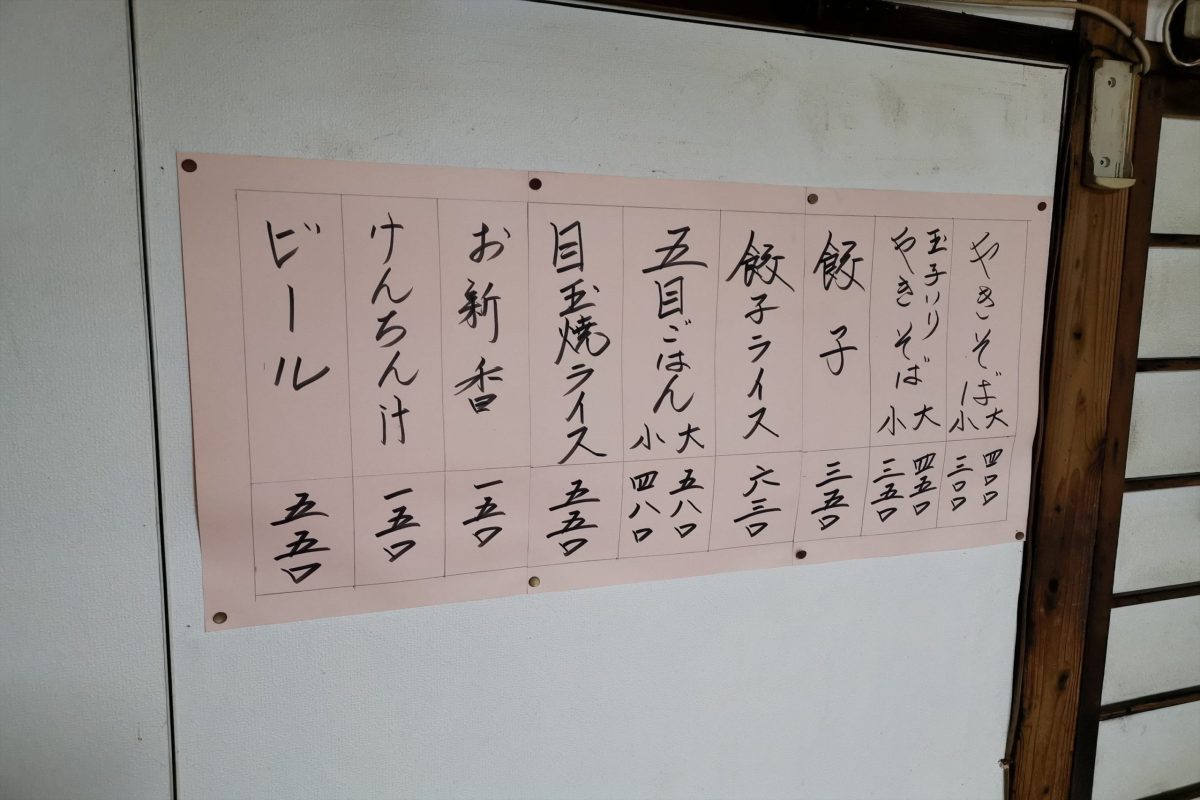 やきそば 大 四〇〇
小 三〇〇
玉子入り
やきそば 大 四五〇
小 三五〇
餃子 三五〇
餃子ライス 六三〇
五目ごはん 大 五八〇
小 四八〇
目玉焼ライス 五五〇
お新香 一五〇
けんちん汁 一五〇
ビール 五五〇